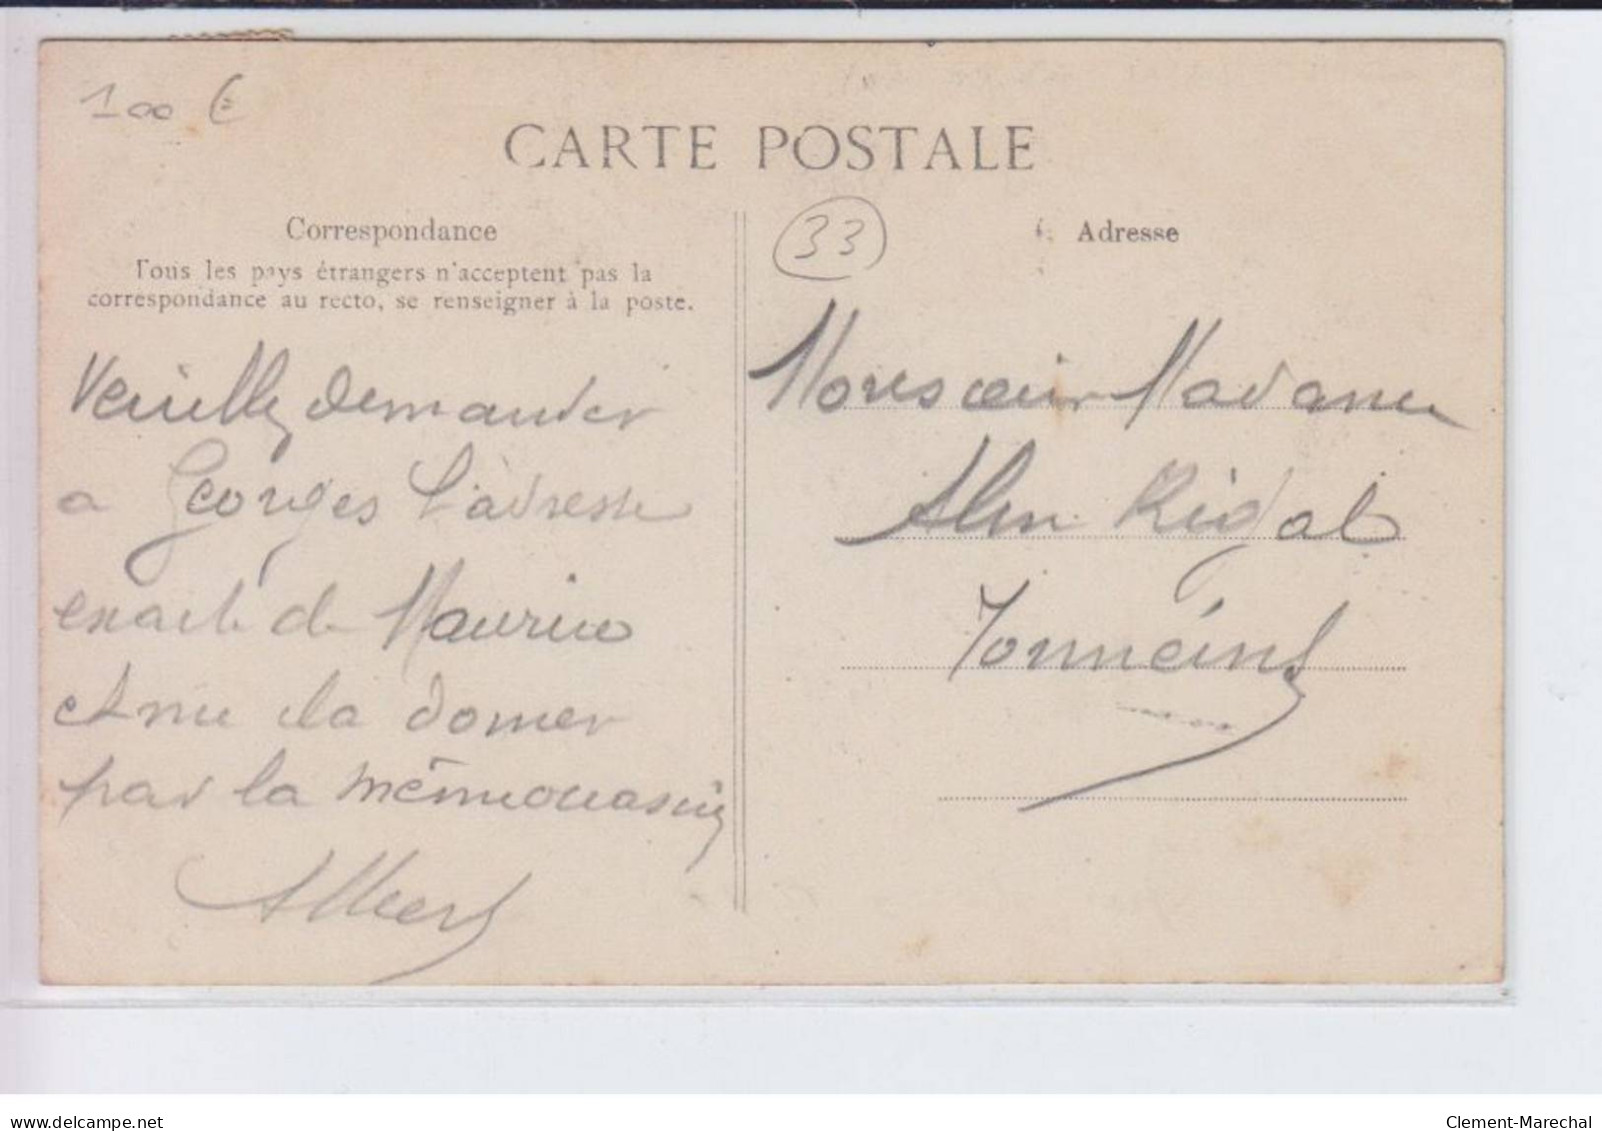 100 €
CARTE POSTALE
33
Correspondance
Tous les pays étrangers n'acceptent pas la
correspondance au recto, se renseigner à la poste.
Adresse
Veuilley demander
a Georges l'adresse
exacte de Maurice
et me la donner
par la même occasion
Albert
Monsieur Madame
Rigal
Tonneins
delcampe.net
Clement-Marechal